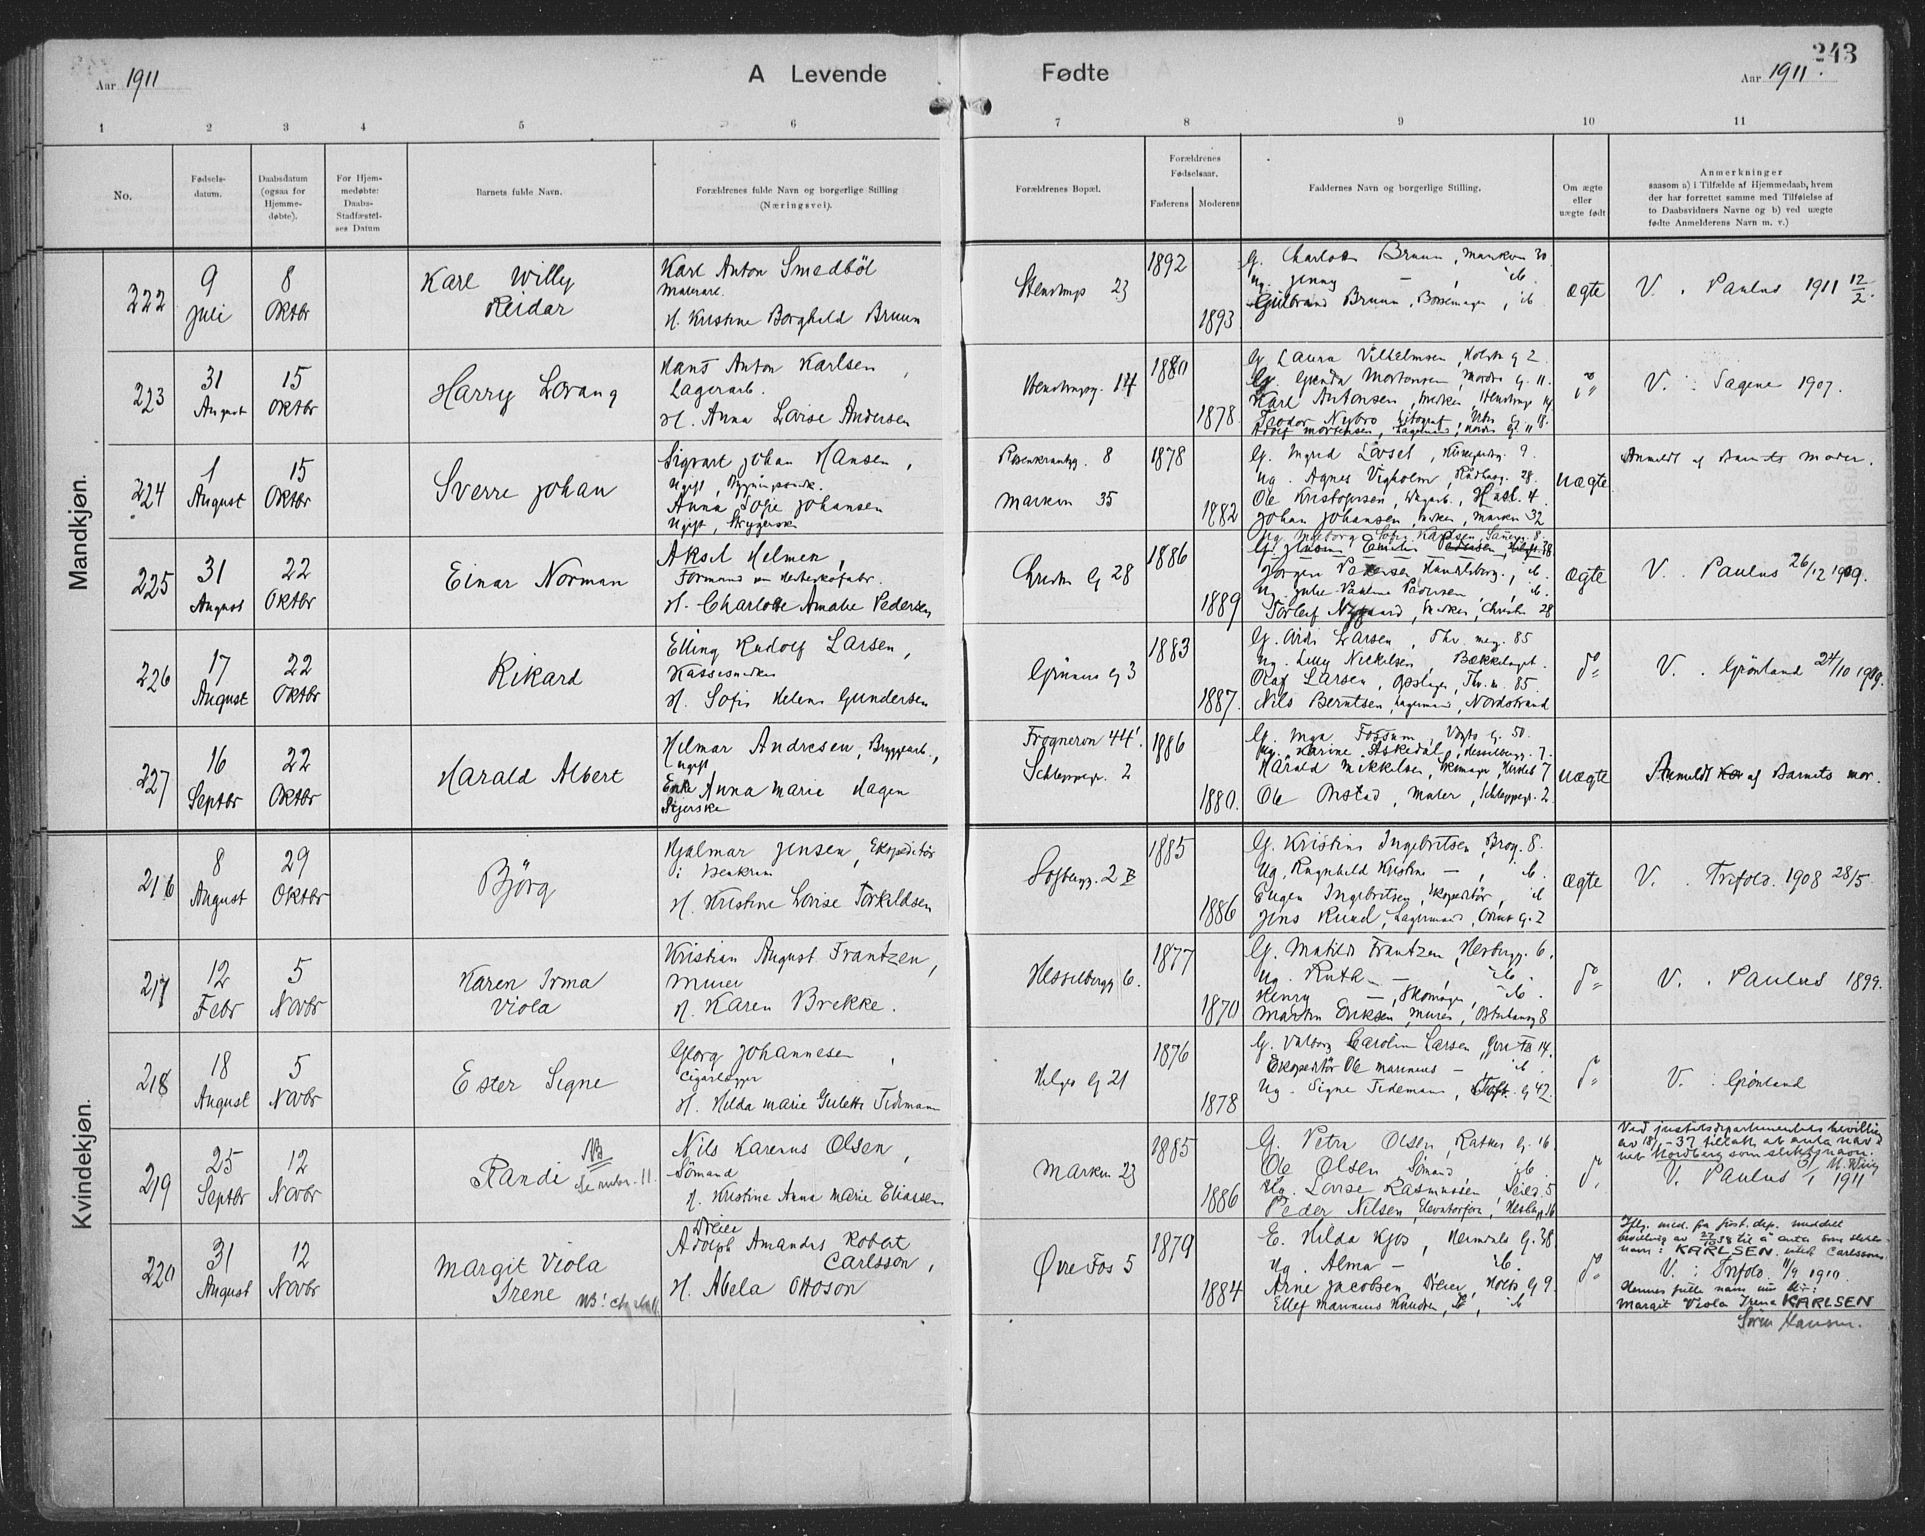 243
Aar 1911
A Levende Fødte
Aar 1911.
1 2 3 4 5 6 7 8 9 10 11
No.
Fødsels-
datum.
Daabsdatum
(ogsaa for
Hjemme-
døbte).
For Hjem-
medøbte:
Daabs-
Stadfæstel-
ses Datum
Barnets fulde Navn.
Forældrenes fulde Navn og borgerlige Stilling
(Næringsvei).
Forældrenes Bopæl.
Forældrenes
Fødselsaar.
Faderens Moderens
Faddernes Navn og borgerlige Stilling.
Om ægte
eller
uægte født
Anmerkninger
saasom a) i Tilfælde af Hjemmedaab, hvem
der har forrettet samme med Tilføielse af
to Daabsvidners Navne og b) ved uægte
fødte Anmelderens Navn m. v.)
Mandkjøn.
222
9
Juli
8
Oktbr
Karl Willy
Reidar
Karl Anton Smedbøl
Malerarb.
H. Kristine Borghild Bruun
Stenstrups 23
1892
1893
G. Charlotte Bruun, Marken 30
Ug. Jenny — , ib.
Gulbrand Bruun, Børsemager, ib
ægte
V. . Paulus 1911 12/2.
223
31
August
15
Oktbr
Harry Lorang
Hans Anton Karlsen,
Lagerarb.
H. Anna Lovise Andersen
Stenstrupsg. 14
1880
1878
G. Laura Vilhelmsen, Holsts g 2
G. Gunda Mortensen, Nordre G. 11.
Karl Antonsen, Snedker, Stenstrups 14
Teodor Nybro, Litograf, 18.
Adolf Mortensen, Lagermand, Nordre G. 11
do
V. : Sagene 1907.
224
1
August
15
Oktbr
Sverre Johan
Sigvart Johan Hansen,
Ugift, Bygningssnedk.
Anna Sofie Johansen
Ugift, Strygerske
Rosenkrantzg. 8
Marken 35
1878
1882
G. Ingrid Løvset, 9.
Ug. Agnes Vigholm, Rådhusg. 28.
Ole Kristofersen, 4.
Johan Johansen, Snedker, Marken 32
uægte
Anmeldt af Barnets Moder.
225
31
August
22
Oktbr
Einar Norman
Aksel Helmen,
Formand ved Hesteskofabr.
H. Charlotte Amalie Pedersen
Christies G 28
1886
1889
Sofie Karlsen, 8
G. Emilie Pedersen, Helges 38
Jørgen Pedersen Handelsborg., ib.
Ug. Julie Pauline Pedersen, ib.
Torleif Nygaard, Snedker, Christies 28
ægte
V. . Paulus 26/12 1909.
226
17
August
22
Oktbr
Rikard
Elling Rudolf Larsen,
Kassesnedker
H. Sofie Helene Gundersen
Grüners G 3
1883
1887.
G. Larsen, Thv. meg. 85
Ug. Lilly Nickelsen, Bækkelaget.
Olaf Larsen, Opslager, Thv. m. 85.
Nils Berntsen, Lagermand, Nordstrand
do
V. . Grønland 24/10 1909.
227
16
Septbr
22
Oktbr
Harald Albert
Hilmar Andresen, Bryggearb.,
ugift
Enke Anna Marie Hagen
Syerske
Frognervn 44.
Schleppegr. 2
1886
1880.
G. Inga Fossum, Vogts G. 50.
Ug. Karine Askedal, Hesselbergg. 7.
Harald Mikkelsen, Skomager, 7
Ole Onstad, Maler, Schleppegr. 2.
uægte
Anmeldt af Barnets Mor.
Kvindekjøn.
216
8
August
29
Oktbr
Björg
Hjalmar Jensen, Ekspeditör
i Isenkram
H. Kristine Lovise Torkildsen
Sofbergg. 2 B
1885
1886
G. Kristine Ingebretsen, Brog. 8.
Ug. Ragnhild Kristine — , ib.
Eugen Ingebretsen, Ekspeditör, ib
Jens Ruud, Lagermand, G. 2
ægte
V. . Trefold. 1908 28/5.
217
12
Febr
5
Novbr
Karen Irma
Viola
Kristian August Frantzen,
Murer
H. Karen Brekke.
Hesselbergg 6.
1877
1870
G. Matilde Frantzen, Hesbergg. 6.
Ug. Ruth — , ib.
Henry — , Skomager, ib.
Martin Eriksen, Murer, 8
do
V. . Paulus 1899.
218
18
August
5
Novbr
Ester Signe
Georg Johannesen,
Cigarlægger
H. Hilda Marie Gulette Tidemann
Helges G 21
1876
1878
G. Valborg Caroline Larsen, 14.
Ekspeditör Ole Marinius — ib.
Ug. Signe Tidemann, Toft. G 42.
do
V. . Grønland
219
25
Septbr
12
Novbr
Randi
NB
11
Nils Karenus Olsen,
Sömand
H. Kristine Anna Marie Eliassen
Marken 23
1885
1886
G. Petra Olsen, Ratkes G. 16
Ole Olsen Sömand ib.
Ug. Lovise Rasmussen, 5
Peder Nilsen, Elevatorförer, 16
do
Ved justisdepartementets bevilling
av 18/1-37 tillatt at anta navnet
Nordberg som slektsnavn.
V. Paulus 1911
220
31
August
12
Novbr
Margit Viola
Irene NB!
Dreier
Adolph Amandus Robert
Carlsson,
H. Abela Ottoson
Øvre Fos 5
1879
1884
E. Hilda Kjos, Hermdals G. 38
Ug. Alma — ib.
Arne Jacobsen Dreier, Holts G 9.
Ellef Marinius Knudsen, ib
do
Iflg. med. fra just. dep. meddelt
bevilling av 27/10 38 til å anta som slekts-
navn: KARLSEN istf. Carlsson.
V. : Trefold. 11/9 1910.
Hennes fulle navn nu blir:
Margit Viola Irene KARLSEN
Søren Hansen.